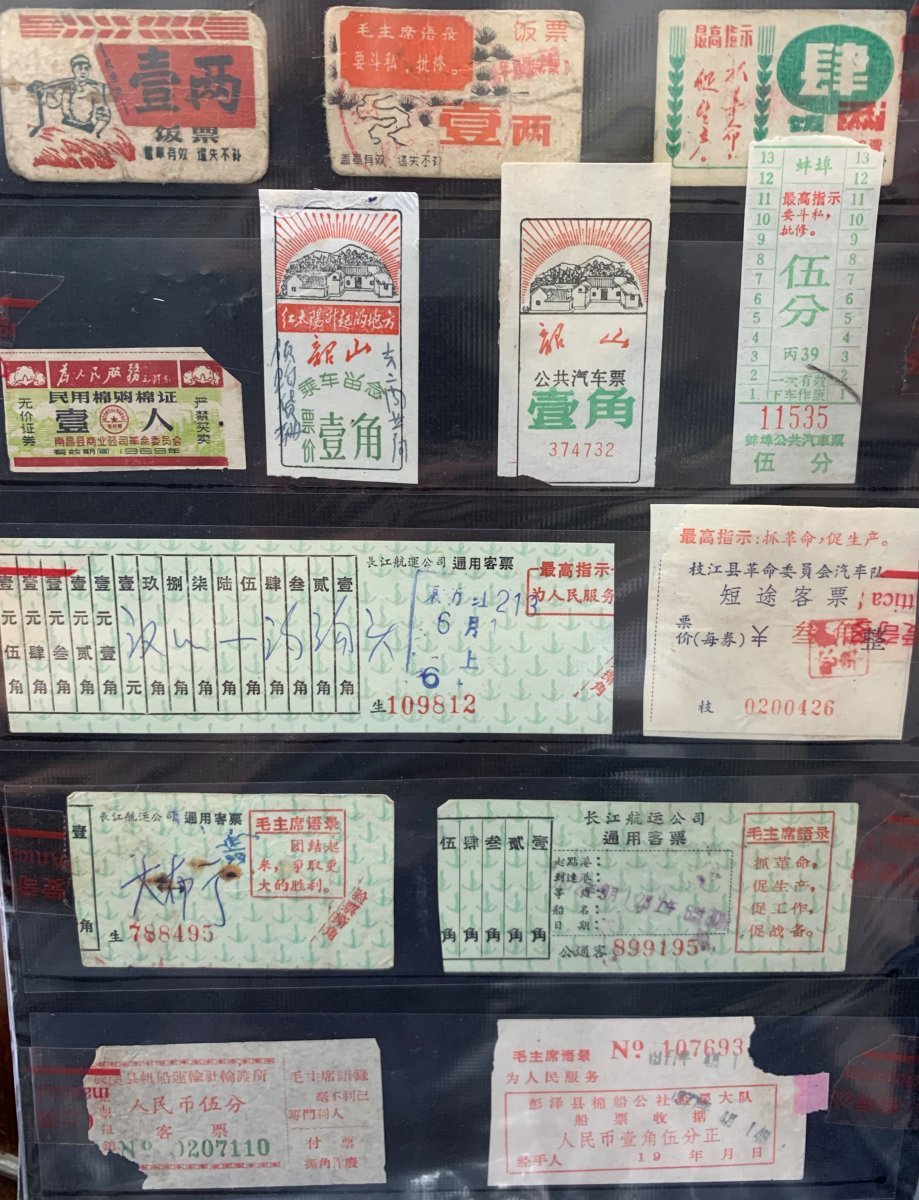 壹两
饭票
盖章有效 遗失不补
毛主席语录
要斗私、批修。
饭票
壹两
盖章有效 遗失不补
最高指示
抓革命
促生产
肆
蚌埠
最高指示
要斗私,
批修。
伍分
丙39
一次有效
下车作废
11535
蚌埠公共汽車票
伍分
13
12
11
10
9
8
7
6
5
4
3
2
1
13
12
11
10
9
8
7
6
5
4
3
2
1
红太陽升起的地方
韶山
票价壹角
韶山
公共汽车票
壹角
374732
为人民服務
民用棉购棉证
壹人
无价证券
严禁买卖
南昌县商业公司革命委员会
有效期间1969年
壹元伍角
壹元肆角
壹元叁角
壹元贰角
壹元壹角
壹元
玖角
捌角
柒角
陆角
伍角
肆角
叁角
贰角
壹角
長江航运公司 通用客票
最高指示
为人民服务
213
6月
6
上
生109812
最高指示:抓革命,促生产。
枝江县革命委员会汽车队
短途客票
票价(每券)¥ 叁角整
枝 0200426
壹角
長江航运公司 通用客票
毛主席语录
团結起
来,爭取更
大的胜利。
生788495
伍角
肆角
叁角
贰角
壹角
长江航运公司
通用客票
起點港:
到達港:
船名:
日期:
公通客899195
毛主席語录
抓革命,
促生产,
促工作,
促战备。
县帆船運輸社輪渡所
人民币伍分
客票
No 0207110
毛主席語錄
毫不利己
專門利人
付票
撕角作廢
毛主席语录 No 107693
为人民服务
彭泽县棉船公社
大队
船票收据
人民币壹角伍分正
经手人 19 年 月 日